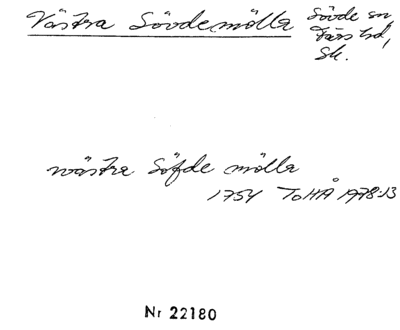 Västra Sövdemölla
Sövde sn,
Färs hd,
Sk.
wästra Söfde mölla
1754 ToHÅ 1978:13
Nr 22180